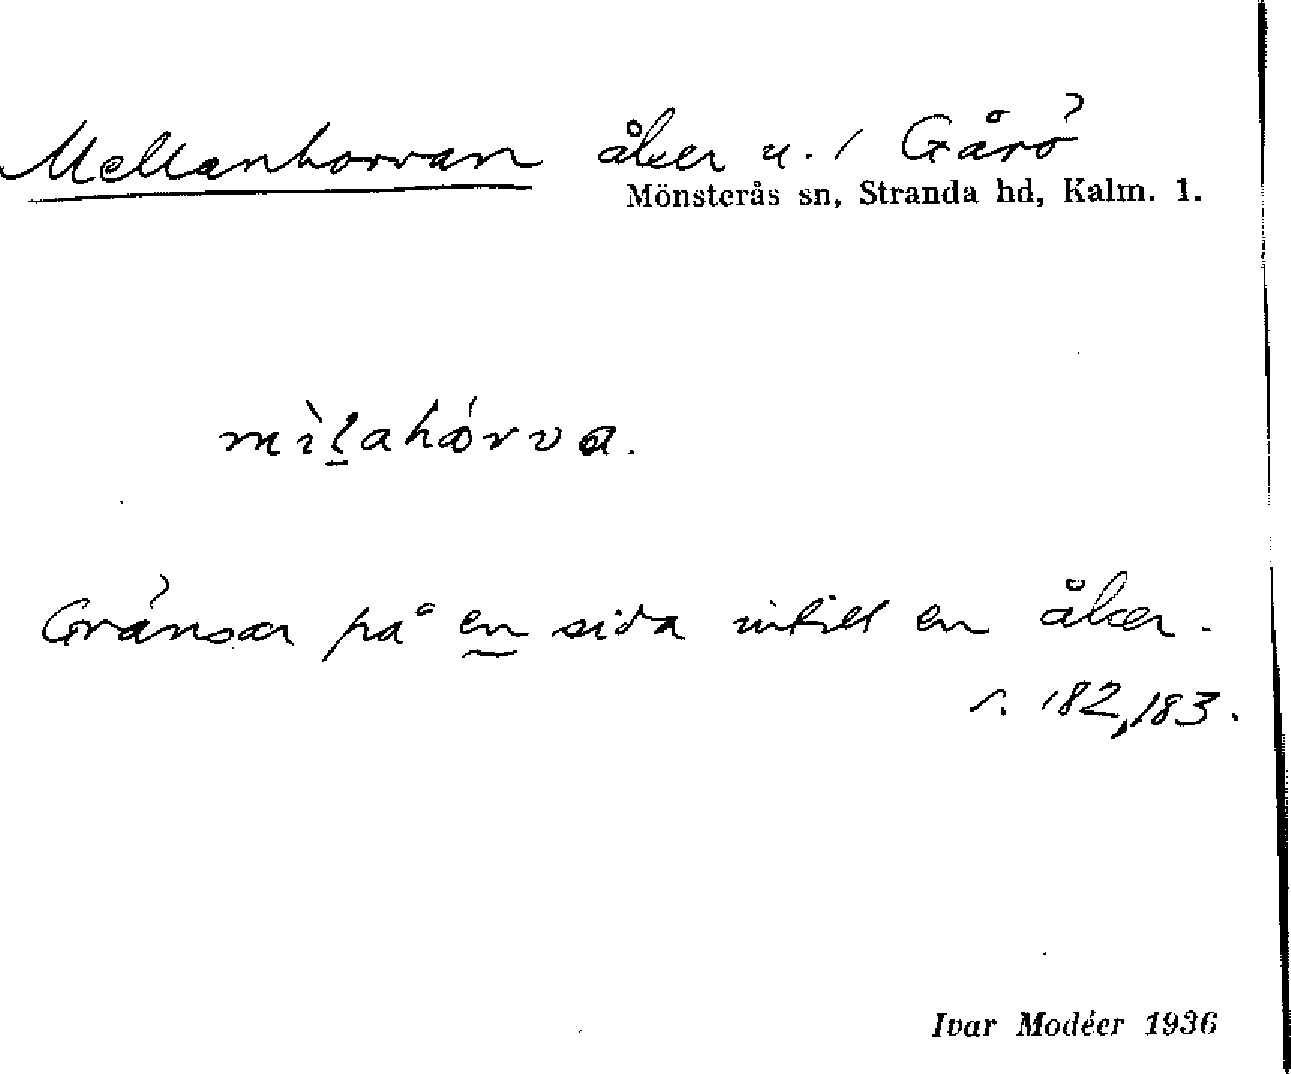 Mellanhorvan åker u. / Gårö
Mönsterås sn, Stranda hd, Kalm. l.
mìl̠ahórva.
Gränsar på en sida intill en åker.
s. 182, 183.
Ivar Modéer 1936